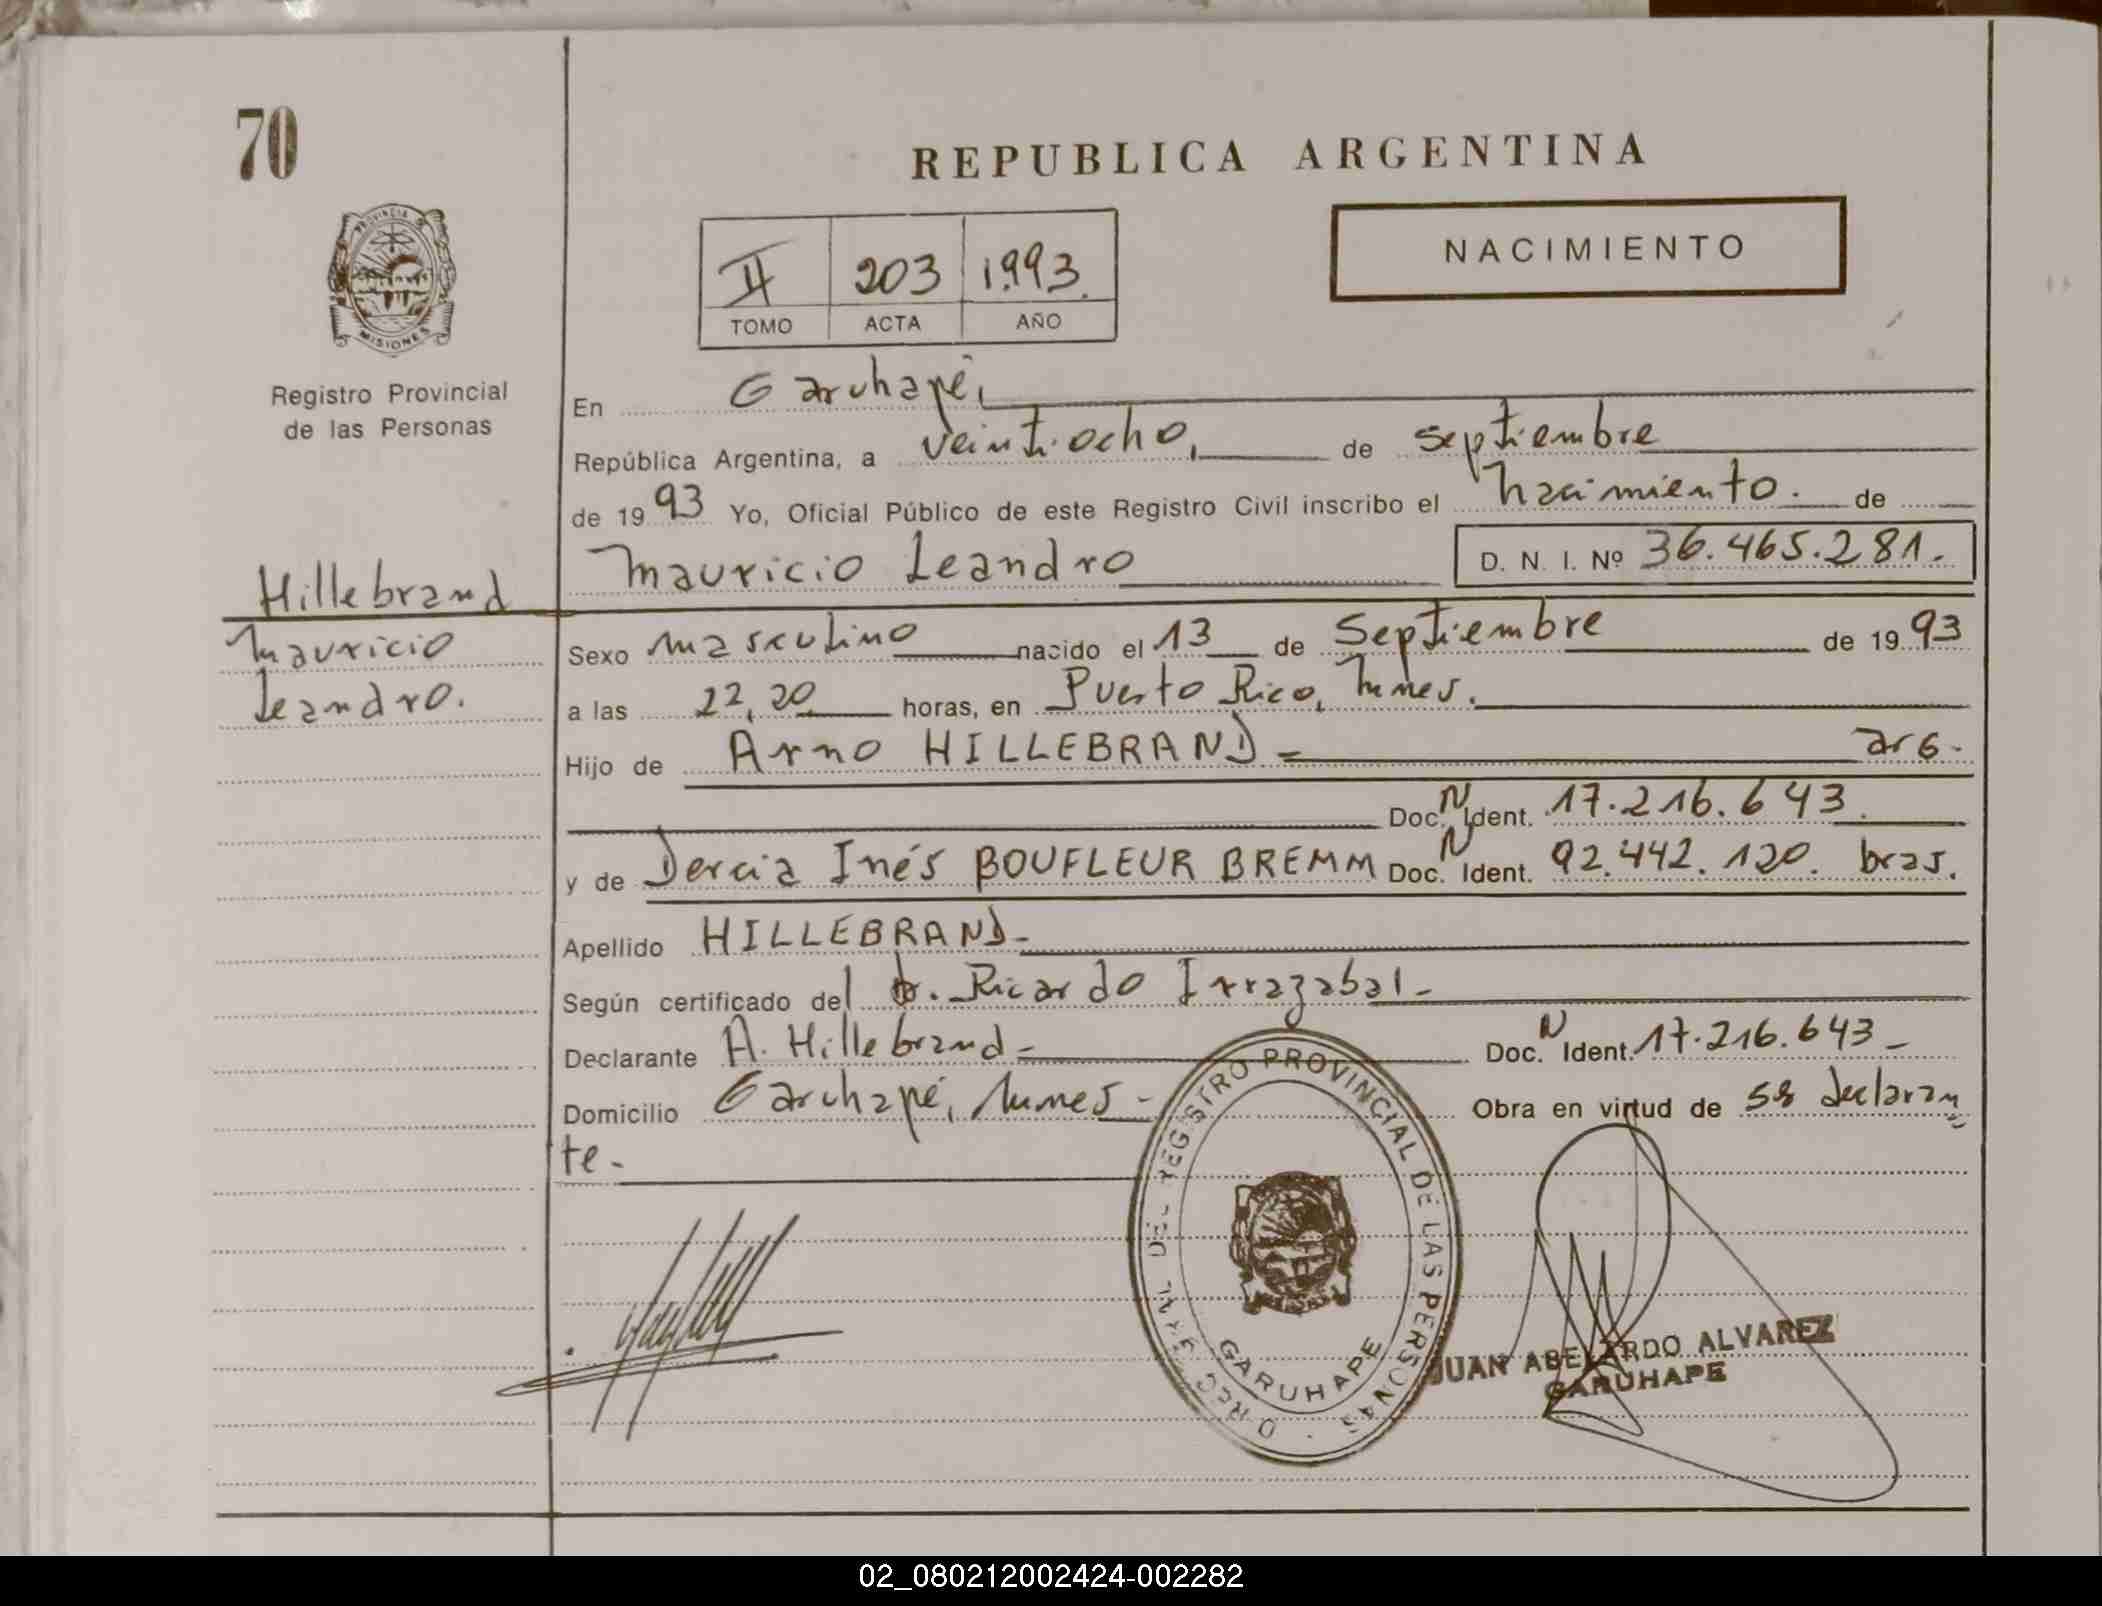 70
REPUBLICA ARGENTINA
NACIMIENTO
II 203 1.993.
TOMO ACTA AÑO
PROVINCIA
MISIONES
Registro Provincial
de las Personas
En Garuhapé,
República Argentina, a veintiocho, de septiembre
de 1993 Yo, Oficial Público de este Registro Civil inscribo el nacimiento. de
Mauricio Leandro D. N. I. Nº 36.465.281.-
Hillebrand
Mauricio
Leandro.
Sexo masculino nacido el 13 de Septiembre de 1993
a las 22,20 horas, en Puerto Rico, Mnes.
Hijo de Arno HILLEBRAND - arg.
Doc. N Ident. 17.216.643.
y de Dercia Inés BOUFLEUR BREMM Doc. N Ident. 92.442.120. bras.
Apellido HILLEBRAND-
Según certificado del Dr. Ricardo Irrazabal-
Declarante A. Hillebrand- Doc. N Ident. 17.216.643-
Domicilio Garuhapé, Mnes- Obra en virtud de ss declaran
te.-
REGISTRO PROVINCIAL DE LAS PERSONAS
GARUHAPE
JUAN ABELARDO ALVAREZ
GARUHAPE
02_080212002424-002282